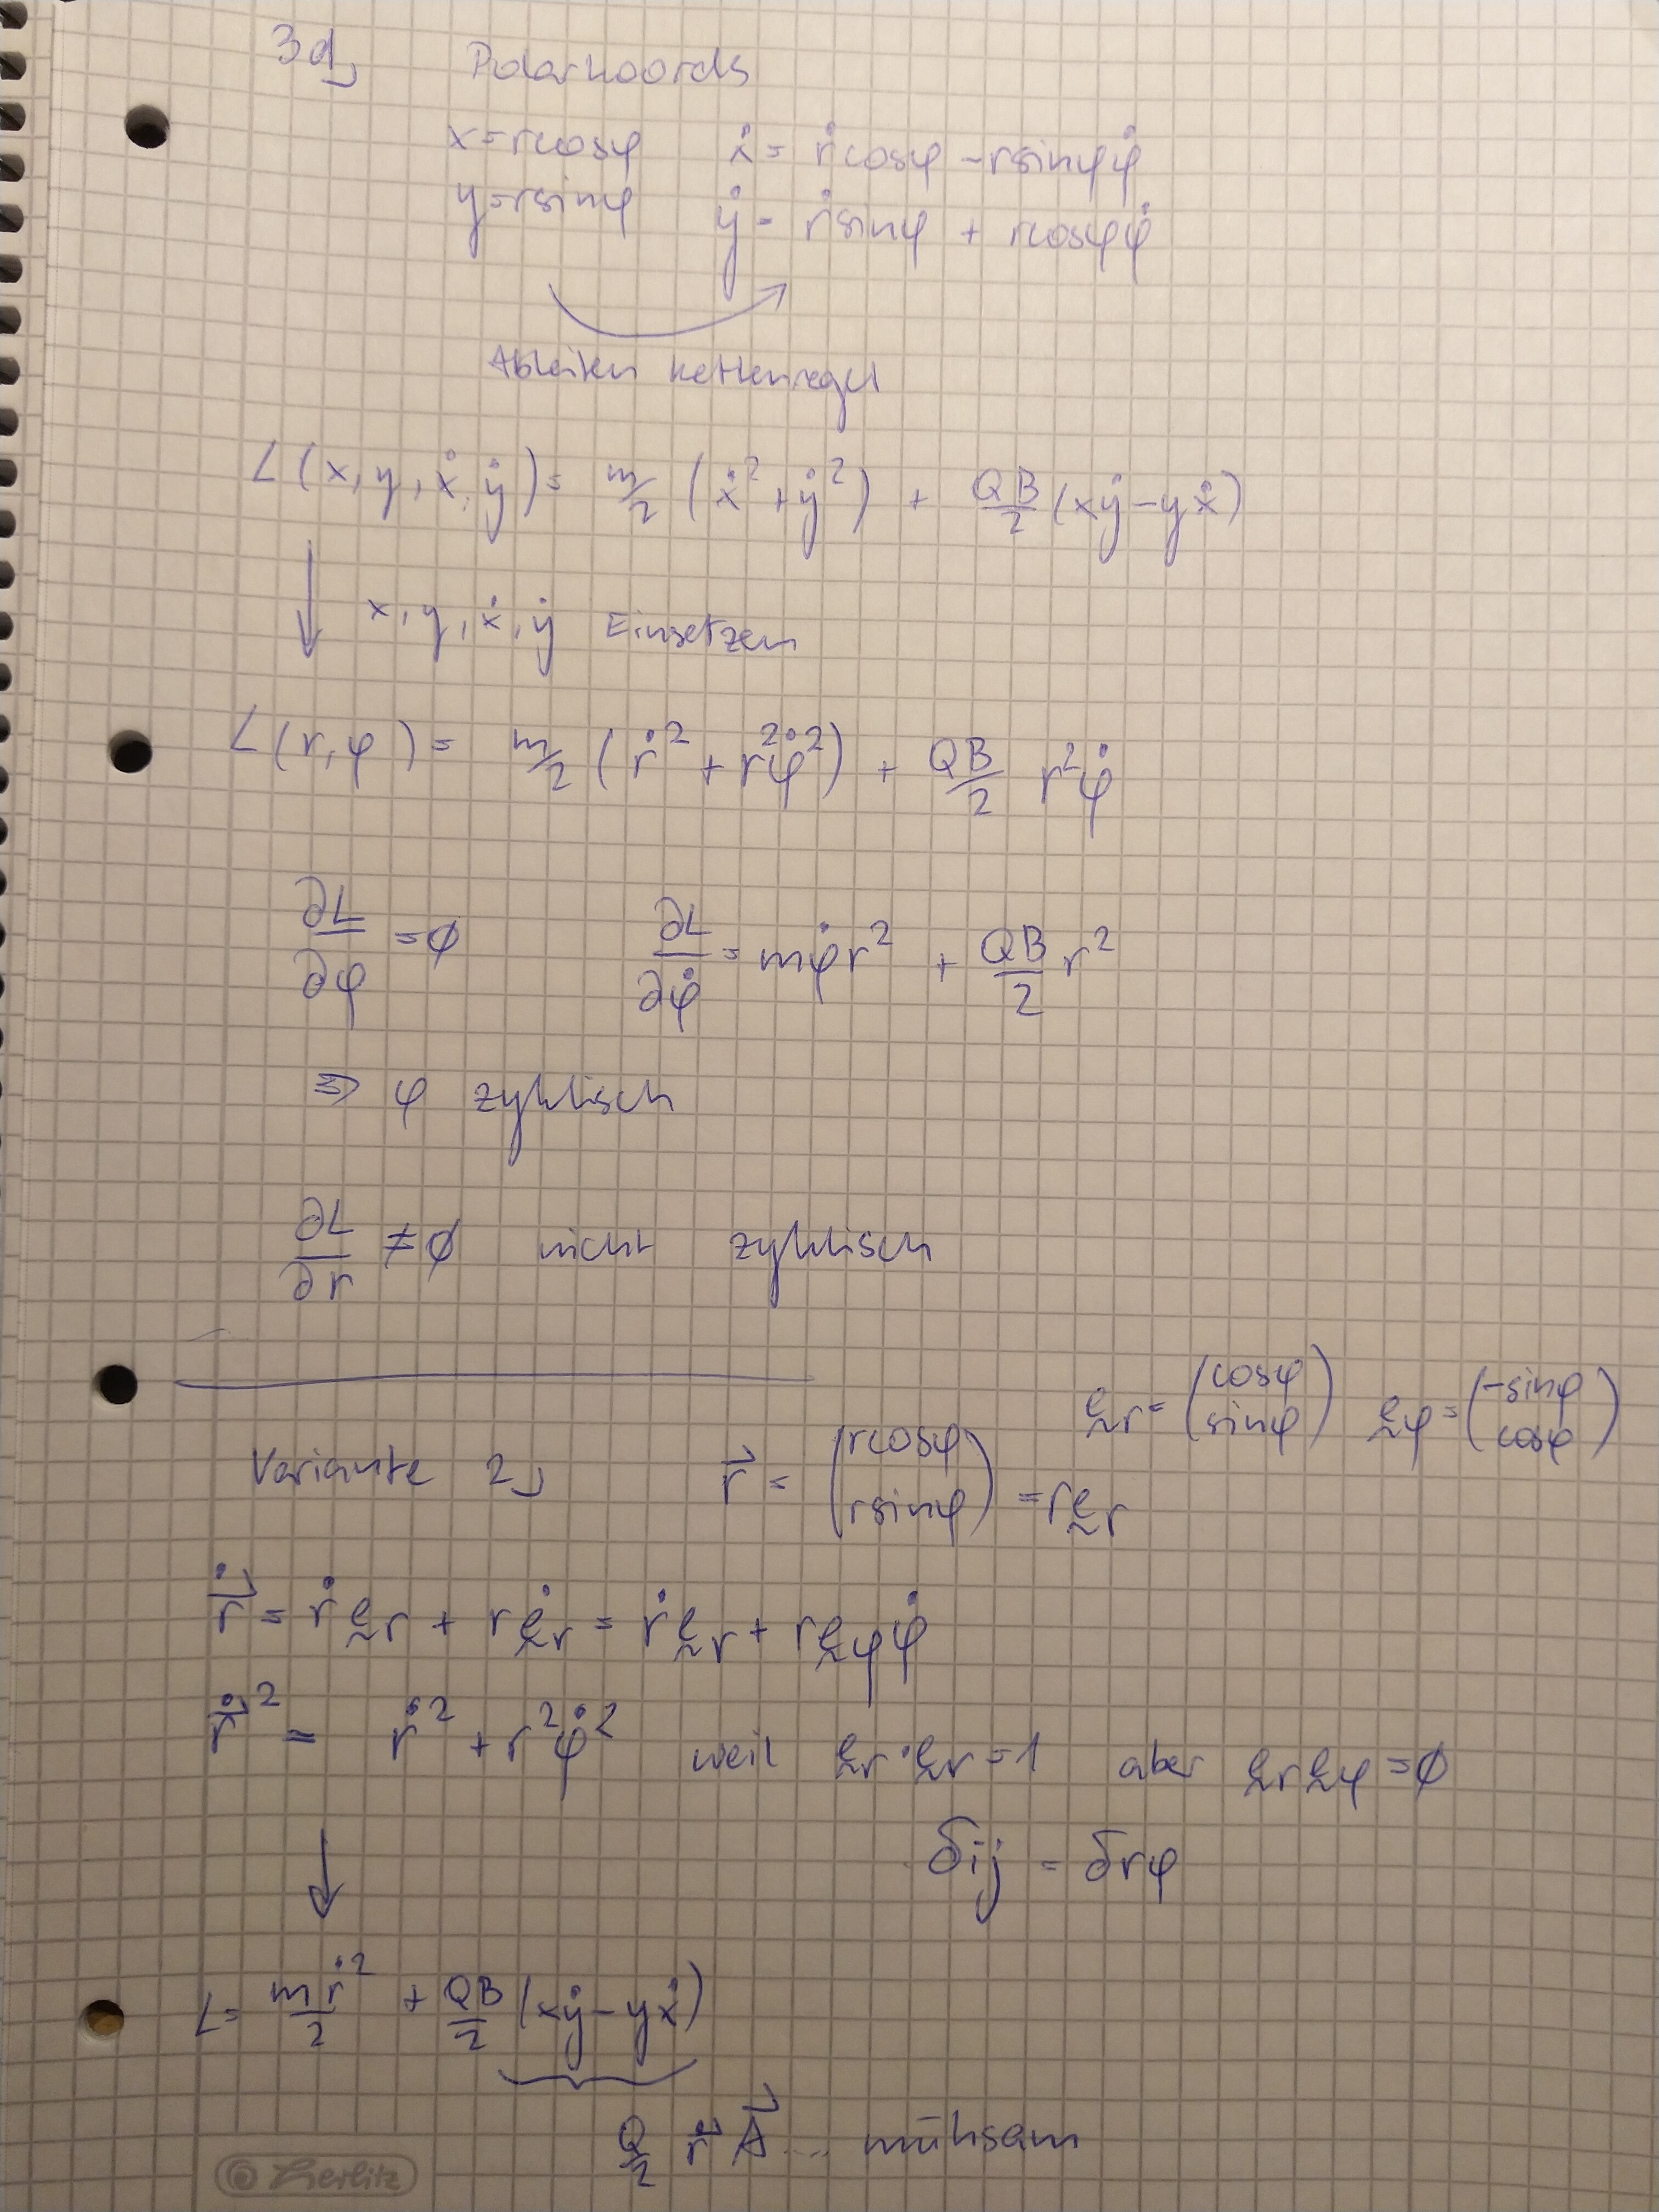 3d) Polarkoords
x=rcosφ ẋ= ṙcosφ -rsinφφ̇
y=rsinφ ẏ= ṙsinφ + rcosφφ̇
Ableiten Kettenregel
L(x,y,ẋ,ẏ)= m/2 (ẋ²+ẏ²) + QB/2 (xẏ-yẋ)
↓ x,y,ẋ,ẏ Einsetzen
L(r,φ)= m/2 (ṙ²+r²φ̇²) + QB/2 r²φ̇
∂L/∂φ =∅ ∂L/∂φ̇ = mφ̇r² + QB/2 r²
⇒ φ zyklisch
∂L/∂r ≠∅ nicht zyklisch
e_r= (cosφ sinφ) e_φ= (-sinφ cosφ)
Variante 2) r⃗ = (rcosφ rsinφ) =re_r
r⃗̇ = ṙe_r + rė_r = ṙe_r + re_φφ̇
r⃗̇² = ṙ² + r²φ̇² weil e_r·e_r=1 aber e_r e_φ=∅
δij = δrφ
↓
L= mṙ²/2 + QB/2 (xẏ-yẋ)
Q/2 r⃗̇ A⃗ ... mühsam
© Herlitz